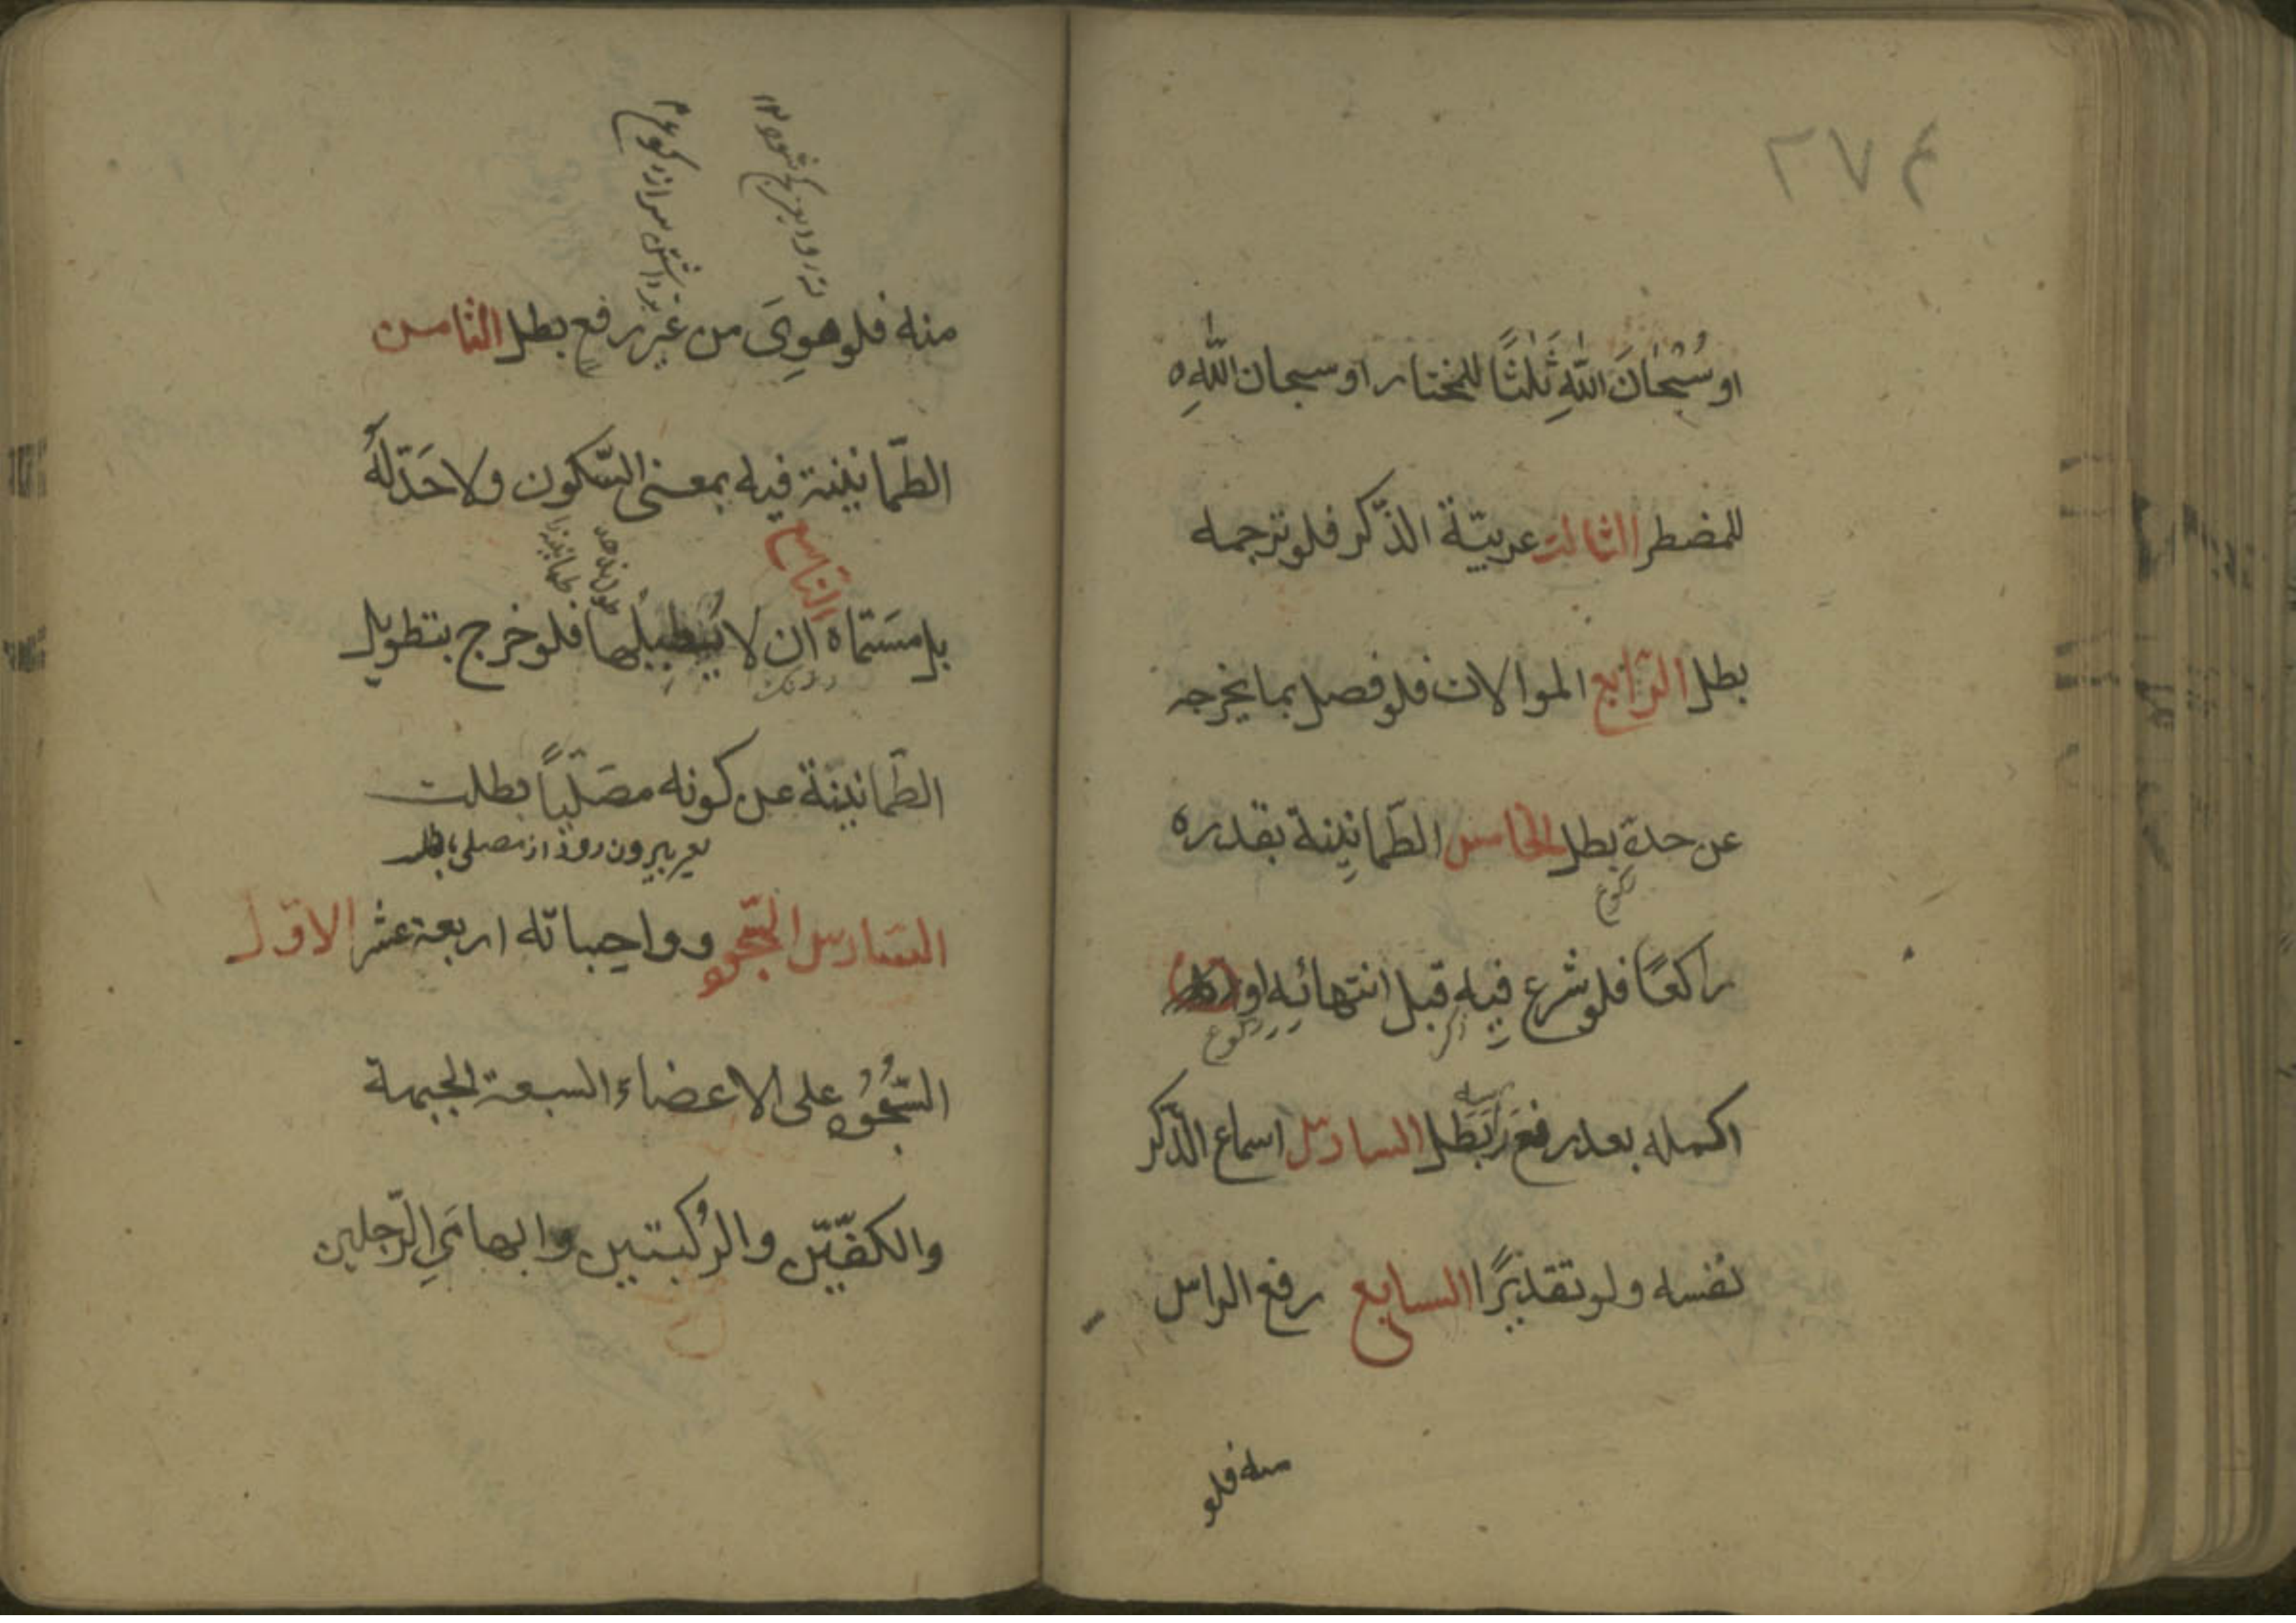 ٢٧٤
او سُبْحَانَ اللّٰهِ ثَلٰثًا للمختار او سبحان اللّٰهِ
للمضطر الثالث عربيّة الذّكر فلو ترجمه
بطل الرّابع الموالات فلو فصل بما يخرجه
عن حدهِ بطل الخامس الطّمانينة بقدره
ركوع
راكعًا فلو شرع فيه قبل انتهائه او
ذكر ركوع
اكمله بعد رفع بَطَل السادس اسماع الذّكر
نفسه ولو تقديرًا السابع رفع الراس
منه فلو
منه فلو هوِىَ من غير رفع بطل الثامن
الطّمانينة فيه بمعنى السّكون ولا حَدّ لهُ
التاسع
بل مسَمّاه ان لا يُطِيلها فلو خرج بتطويل
الطّمانينة عن كونه مصَلّياً بطلت
بيرون رود از مصلى
السّادس السّجود وواجباته اربعة عشر الاوّل
السّجُود على الاعضاء السبعة الجبهة
والكفّيّن والرُكبتين وابهامَيِ الرّجلين